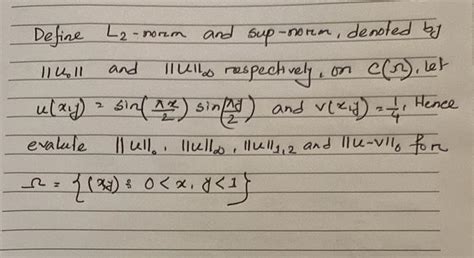 Define L₂-norm and sup-norm, denoted by
||u₀|| and ||u||∞ respectively, on C(Ω), let
u(x,y) = sin(πx/2) sin(πy/2) and v(x,y) = 1/4, Hence
evaluate ||u||₀, ||u||∞, ||u||₁,₂ and ||u-v||₀ for
Ω = {(x,y) : 0 < x, y < 1}